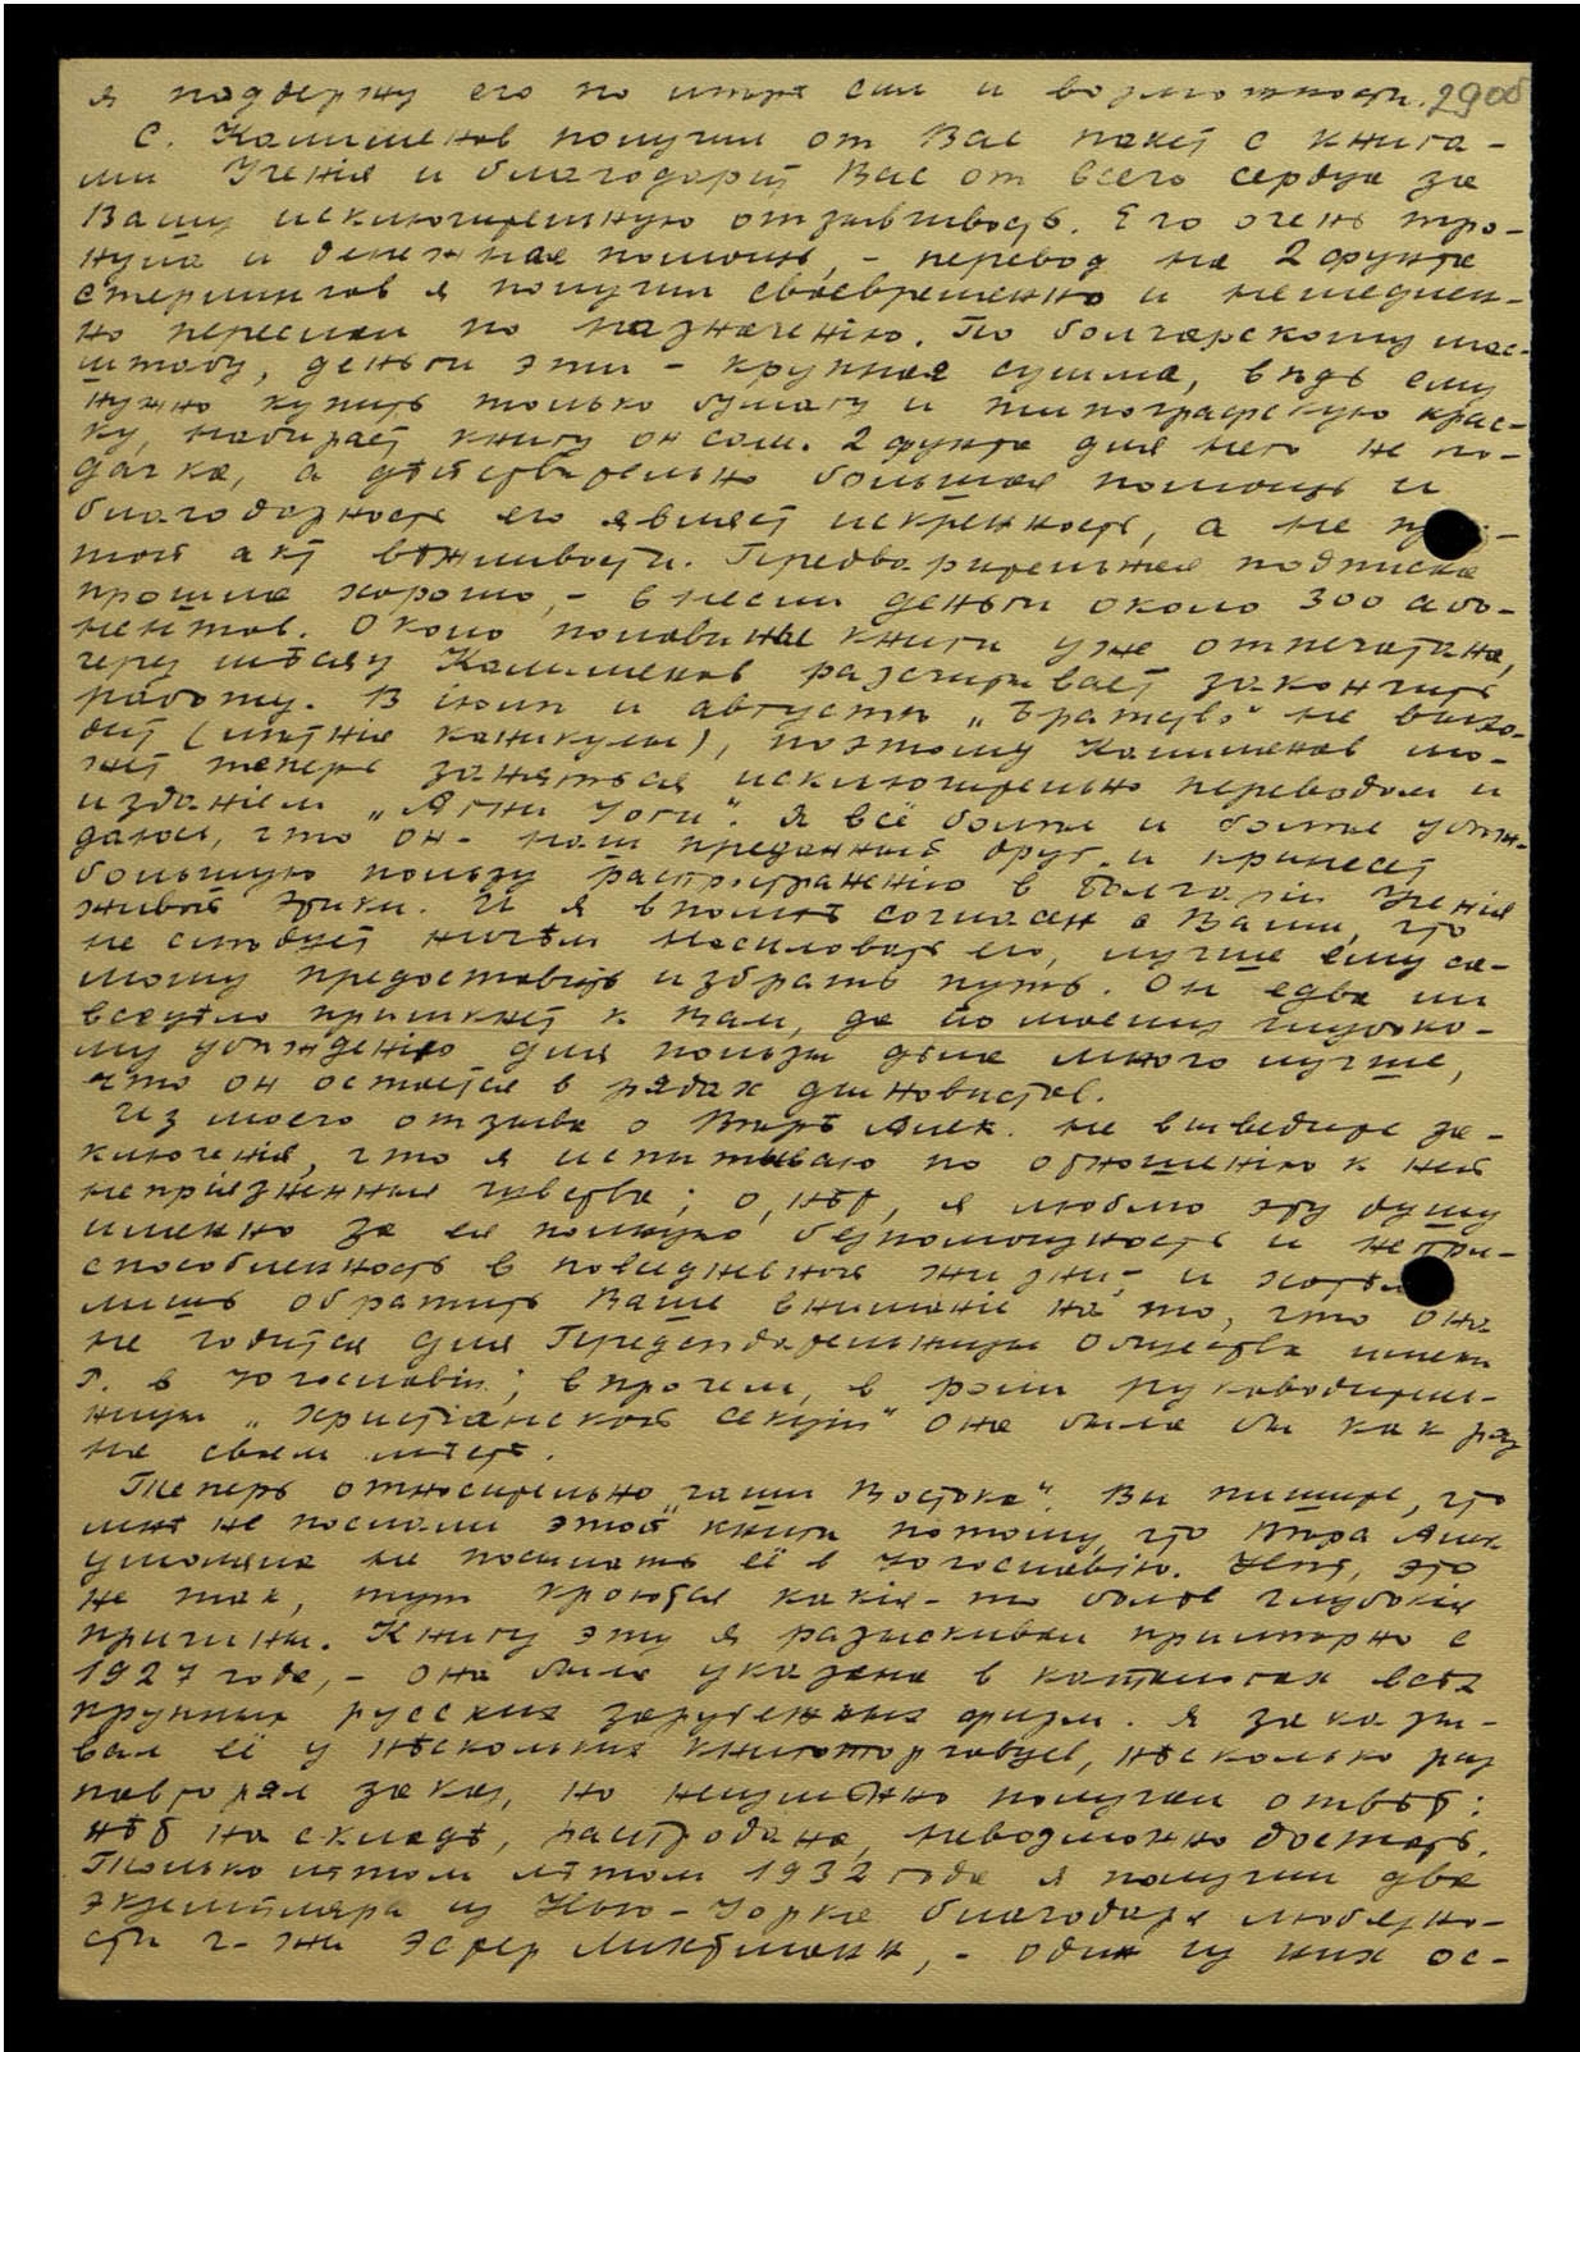 я поддержу его по мѣрѣ сил и возможности. 29об
С. Калименов получил от Вас пакет с книга-
ми Ученія и благодарит Вас от всего сердца за
Вашу исключительную отзывчивость. Его очень тро-
нула и денежная помощь, – перевод на 2 фунта
стерлингов я получил своевременно и немедлен-
но переслал по назначенію. По болгарскому мас-
штабу, деньги эти – крупная сумма, вѣдь ему
нужно купить только бумагу и типографскую крас-
ку, набирает книгу он сам. 2 фунта для него не по-
дачка, а дѣйствительно большая помощь и
благодарность его являет искренность, а не
той акт вѣжливости. Предварительная подписка
прошла хорошо, – внесли деньги около 300 або-
нентов. Около половины книги уже отпечатана,
через мѣсяц Калименов разсчитывает закончить
работу. В іюлѣ и августѣ „Братство" не выхо-
дит (лѣтнія каникулы), поэтому Калименов мо-
жет теперь заняться исключительно переводом и
изданіем „Агни Йоги". Я всё болѣе и болѣе убѣж-
даюсь, что он – наш преданный друг и принесет
большую пользу распространенію в Болгаріи Ученія
живой Этики. И я вполнѣ согласен с Вами, что
не слѣдует ничѣм насиловать его, лучше ему са-
мому предоставить избрать путь. Он едва ли
всецѣло примкнет к Вам, да по моему глубоко-
му убѣжденію для пользы дѣла много лучше,
что он остается в рядах дыновистов.
Из моего отзыва о Вѣрѣ Алек. не выведите за-
ключенія, что я испытываю по отношенію к ней
непріязненныя чувства; о, нѣт, я люблю эту душу
именно за ея полную безпомощность и непри-
способленность в повседневной жизни, – и хотѣл
лишь обратить Ваше вниманіе на то, что она
не годится для Предсѣдательницы Общества имени
Р. в Югославіи; впрочем, в роли руководитель-
ницы „Христіанской секціи" она была бы как раз
на своем мѣстѣ.
Теперь относительно „Чаши Востока". Вы пишите, что
мнѣ не послали этой книги потому, что Вѣра Алек.
умоляла не посылать её в Югославію. Нѣт, это
не так, тут кроются какія-то болѣе глубокія
причины. Книгу эту я разыскивал примѣрно с
1927 года, – она была указана в каталогах всѣх
крупных русских зарубежных фирм. Я заказы-
вал её у нѣскольких книготорговцев, нѣсколько раз
повторял заказ, но неизмѣнно получал отвѣт:
нѣт на складѣ, распродана, невозможно достать.
Только лѣтом лѣтом 1932 года я получил два
экземпляра из Нью-Йорка благодаря любезно-
сти г-жи Эстер Лихтманн, – один из них ос-